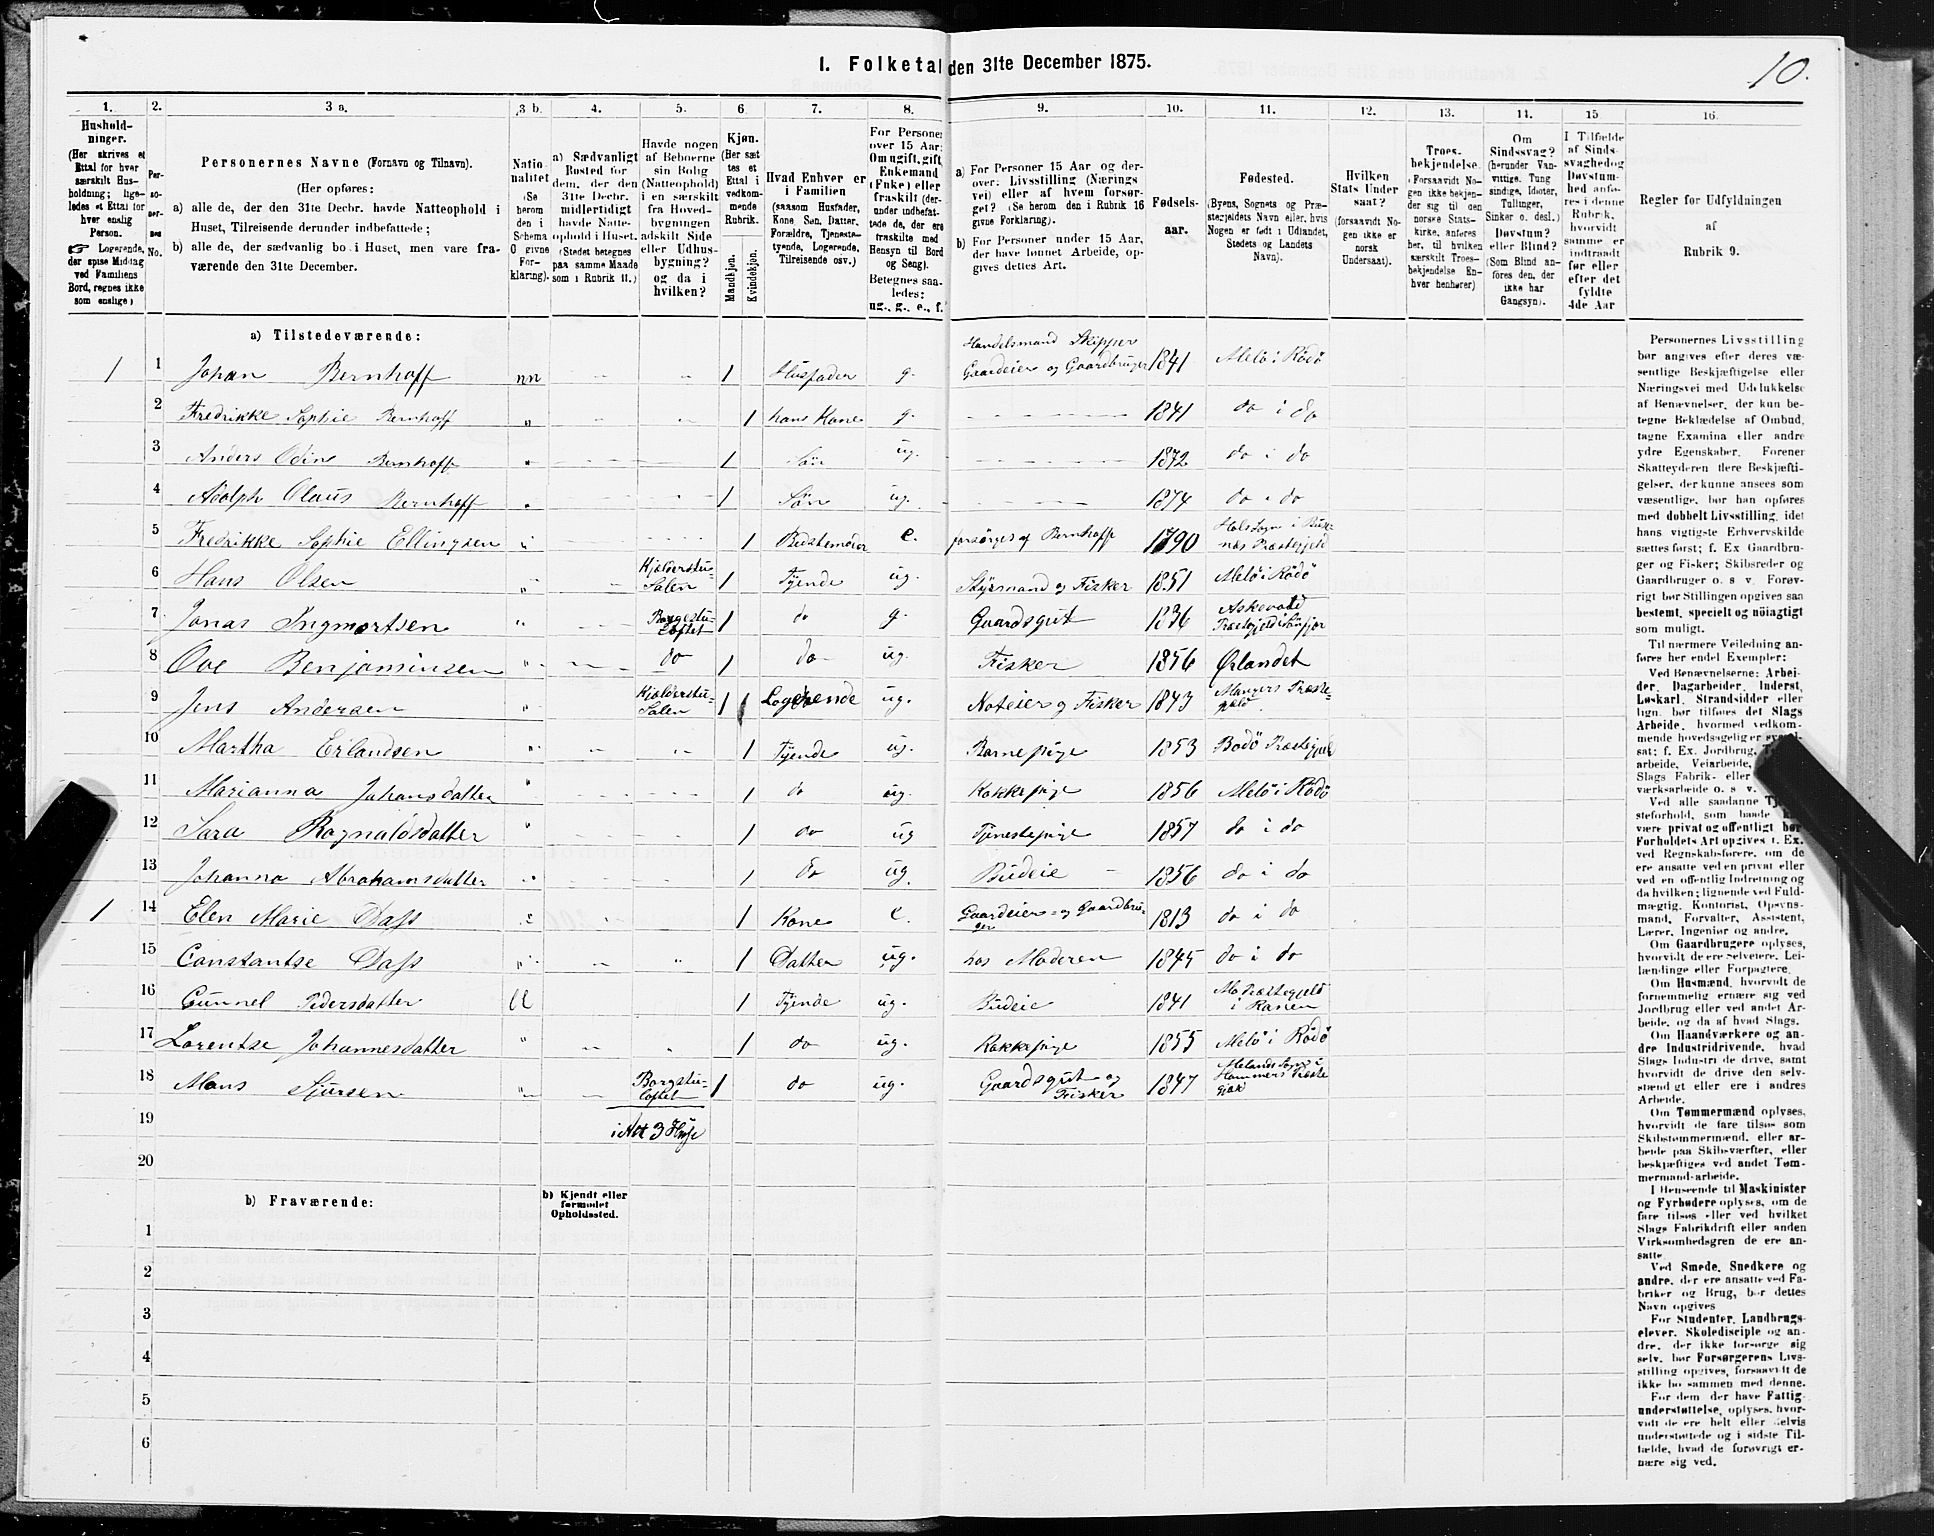 I. Folketal den 31te December 1875.
10.
1. 2. 3 a. 3 b. 4. 5. 6 7. 8. 9. 10. 11. 12. 13. 14. 15 16.
Hushold-
ninger.
(Her skrives et
Ettal for hver
særskilt Hus-
holdning; lige-
ledes et Ettal for
hver enslig
Person.
☞ Logerende,
der spise Middag
ved Familiens
Bord, regnes ikke
som enslige)
Per-
so-
ner-
nes
No.
Personernes Navne (Fornavn og Tilnavn).
(Her opføres:
a) alle de, der den 31te Decbr. havde Natteophold i
Huset, Tilreisende derunder indbefattede;
b) alle de, der sædvanlig bo i Huset, men vare fra-
værende den 31te December.
Natio-
nalitet
(Se
herom
den i
Schema
0 givne
For-
klaring).
a) Sædvanligt
Bosted for
dem, der den
31te Decbr.
midlertidigt
havde Natte-
ophold i Huset.
(Stedet betegnes
paa samme Maade
som i Rubrik 11.)
Havde nogen
af Beboerne
sin Bolig
(Natteophold)
i en særskilt
fra Hoved-
bygningen
adskilt Side
eller Udhus-
bygning?
og da i
hvilken?
Kjøn.
(Her sæt
tes et
Ettal i
vedkom-
mende
Rubrik.
Mandkjøn.
Kvindekjøn.
Hvad Enhver er
i Familien
(saasom Husfader,
Kone, Søn, Datter,
Forældre, Tjeneste-
tyende, Logerende,
Tilreisende osv.)
For Personer
over 15 Aar:
Om ugift, gift,
Enkemand
(Enke) eller
fraskilt (der-
under indbefat-
tede de, der ere
fraskilte med
Hensyn til Bord
og Seng).
Betegnes saa-
ledes:
ug., g., e., f.
a) For Personer 15 Aar og der-
over: Livsstilling (Nærings
vei) eller af hvem forsør-
get? (Se herom den i Rubrik 16
givne Forklaring).
b) For Personer under 15 Aar,
der have lønnet Arbeide, op-
gives dettes Art.
Fødsels-
aar.
Fødested.
(Byens, Sognets og Præ-
stegjeldets Navn eller, hvis
Nogen er født i Udlandet,
Stedets og Landets
Navn).
Hvilken
Stats Under
saat?
(forsaavidt No-
gen ikke er
norsk
Undersaat).
Troes-
bekjendelse
(Forsaavidt No-
gen ikke bekjen-
der sig til den
norske Stats-
kirke, anføres
her, til hvilken
særskilt Troes-
bekjendelse En-
hver henhører)
Om
Sindssvag?
(herunder Van-
vittige, Tung
sindige, Idioter,
Tullinger,
Sinker o. desl.)
Døvstum?
eller Blind?
(Som Blind an-
føres den, der
ikke har
Gangsyn).
I Tilfælde
af Sinds-
svaghed og
Døvstum-
hed anfø-
res i denne
Rubrik,
hvorvidt
samme er
indtraadt
før eller
efter det
fyldte
4de Aar
Regler for Udfyldningen
af
Rubrik 9.
a) Tilstedeværende:
1 1 Johan Bernhoff nn 1 Husfader g. Handelsmand Skipper Gaardeier og Gaardbruger 1841 Melö i Rödö
2 Fredrikke Sophie Bernhoff 1 hans Kone g. 1841 do i do
3 Anders Odin Bernhoff 1 Sön ug. 1872 do i do
4 Adolph Olaus Bernhoff 1 Sön ug. 1874 do i do
5 Fredrikke Sophie Ellingsen 1 Bedstemoder e. forsörges af Bernhoff 1790 Præstegjeld
6 Hans Olsen Kjælderstu-Salen 1 Tyende ug. Styrmand og Fisker 1851 Melö i Rödö
7 Jonas Ingmortsen Borgestu-Loftet 1 do g. Gaardsgut 1836 Askevold Præstegjeld
8 Ove Benjaminsen do 1 do ug. Fisker 1856 Ørlandet
9 Jens Andersen Kjælderstu-Salen 1 Logerende ug. Noteier og Fisker 1843 Mangers Præste-gjeld
10 Martha Erlandsen 1 Tyende ug. Barnepige 1853 Bodö Præstegjeld
11 Marianna Johansdatter 1 do ug. Kokkepige 1856 Melö i Rödö
12 Sara Ragnaldsdatter 1 do ug Tjenestepige 1857 do i do
13 Johanna Abrahamsdatter 1 do ug. Budeie 1856 do i do
1 14 Elen Marie Dass 1 Kone e. Gaardeier og Gaardbru-ger 1813 do i do
15 Constantse Dass 1 Datter ug. hos Moderen 1845 do i do
16 Gunnel Pedersdatter 1 Tyende ug. Budeie 1841 Mo Præstegjeld i Ranen
17 Lorentse Johannesdatter 1 do ug. Kokkepige 1855 Melö i Rödö
18 Mons Sjursen Borgstu-Loftet 1 do ug. Gaardsgut og Fisker 1847 Melands Sogn i Hammers Præste gjæld
19 i Alt 3 Huse
20
b) Fraværende:
b) Kjendt eller
formodet
Opholdssted.
1
2
3
4
5
6
Personernes Livsstilling
bør angives efter deres væ-
sentlige Beskjæftigelse eller
Næringsvei med Udelukkelse
af Benævnelser, der kun be-
tegne Beklædelse af Ombud,
tagne Examina eller andre
ydre Egenskaber. Forener
Skatteyderen flere Beskjæfti-
gelser, der kunne ansees som
væsentlige, bør han opføres
med dobbelt Livsstilling, idet
hans vigtigste Erhvervskilde
sættes først; f. Ex Gaardbru-
ger og Fisker; Skibsreder og
Gaardbruger o. s v. Forøv-
rigt bør Stillingen opgives saa
bestemt, specielt og nöiagtigt
som muligt.
Til nærmere Veiledning an-
føres her endel Exempler:
Ved Benævnelserne: Arbei-
der, Dagarbeider, Inderst,
Løskarl, Strandsidder eller
lign. bør tilføies det Slags
Arbeide, hvormed vedkom-
mende hovedsagelig er
sat; f. Ex. Jordbrug,
arbeide, Veiarbeide,
Slags Fabrik- eller
værksarbeide o. s v.
Ved alle saadanne
steforhold, som baade
være privat og offentligt bør
Forholdets Art opgives f. Ex.
ved Regnskabsførere, om de
ere ansatte ved en privat eller
ved en offentlig Indretning og
da hvilken; lignende ved Fuld-
mægtig, Kontorist, Opsyns-
mand, Forvalter, Assistent,
Lærer, Ingeniør og andre.
Om Gaardbrugere oplyses,
hvorvidt de ere Selveiere, Lei-
lændinge eller Forpagtere.
Om Husmænd, hvorvidt de
fornemmelig ernære sig ved
Jordbrug eller ved andet Ar-
beide, og da af hvad Slags.
Om Haandværkere og an-
dre Industridrivende, hvad
Slags Industri de drive, samt
hvorvidt de drive den selv-
stændigt eller ere i andres
Arbeide.
Om Tømmermænd oplyses,
hvorvidt de fare tilsøs som
Skibstømmermænd, eller ar-
beide paa Skibsværfter, eller
beskjæftiges ved andet Tøm-
mermand-arbeide.
I Henseende til Maskinister
og Fyrbødere oplyses, om de
fare tilsøs eller ved hvilket
Slags Fabrikdrift eller anden
Virksomhedsgren de ere an-
satte
Ved Smede, Snedkere og
andre, der ere ansatte ved Fa-
briker og Brug, bør dettes
Navn opgives
For Studenter, Landbrugs-
elever, Skoledisciple og an-
dre, der ikke forsørge sig
selv, bør Forsørgerens Livs-
stilling opgives, forsaavidt de
ikke bo sammen med denne.
For dem, der have Fattig-
understøttelse, oplyses, hvor-
vidt de ere helt eller delvis
understøttede og i sidste Til-
fælde, hvad de forøvrigt er-
nære sig ved.